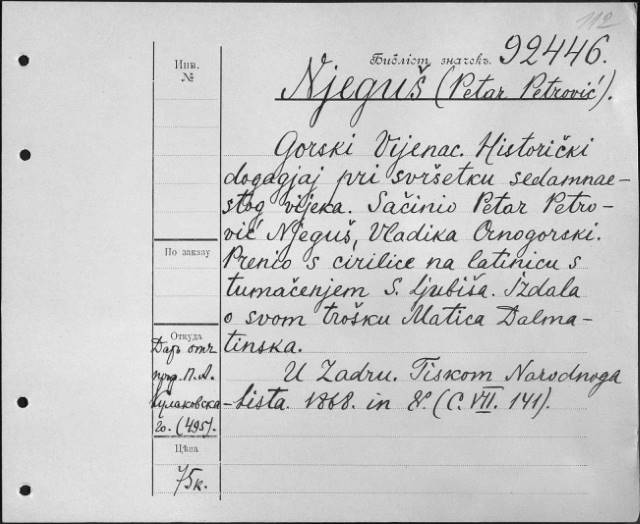 112
Инв.
№
Библіот. значекъ.
92446.
Njeguš (Petar Petrović).
Gorski Vijenac. Historički
dogagjaj pri svršetku sedamnae-
stog vijeka. Sačinio Petar Petro-
vić Njeguš, Vladika Crnogorski.
Prenio s cirilice na latinicu s
tumačenjem S. Ljubiša. Izdala
o svom trošku Matica Dalma-
tinska.
U Zadru. Tiskom Narodnoga
Lista. 1868. in 8º. (C. VII. 141).
По заказу
Откуда
Даръ отъ
проф. П. А.
Кулаковска-
го. (495).
Цѣна
75к.